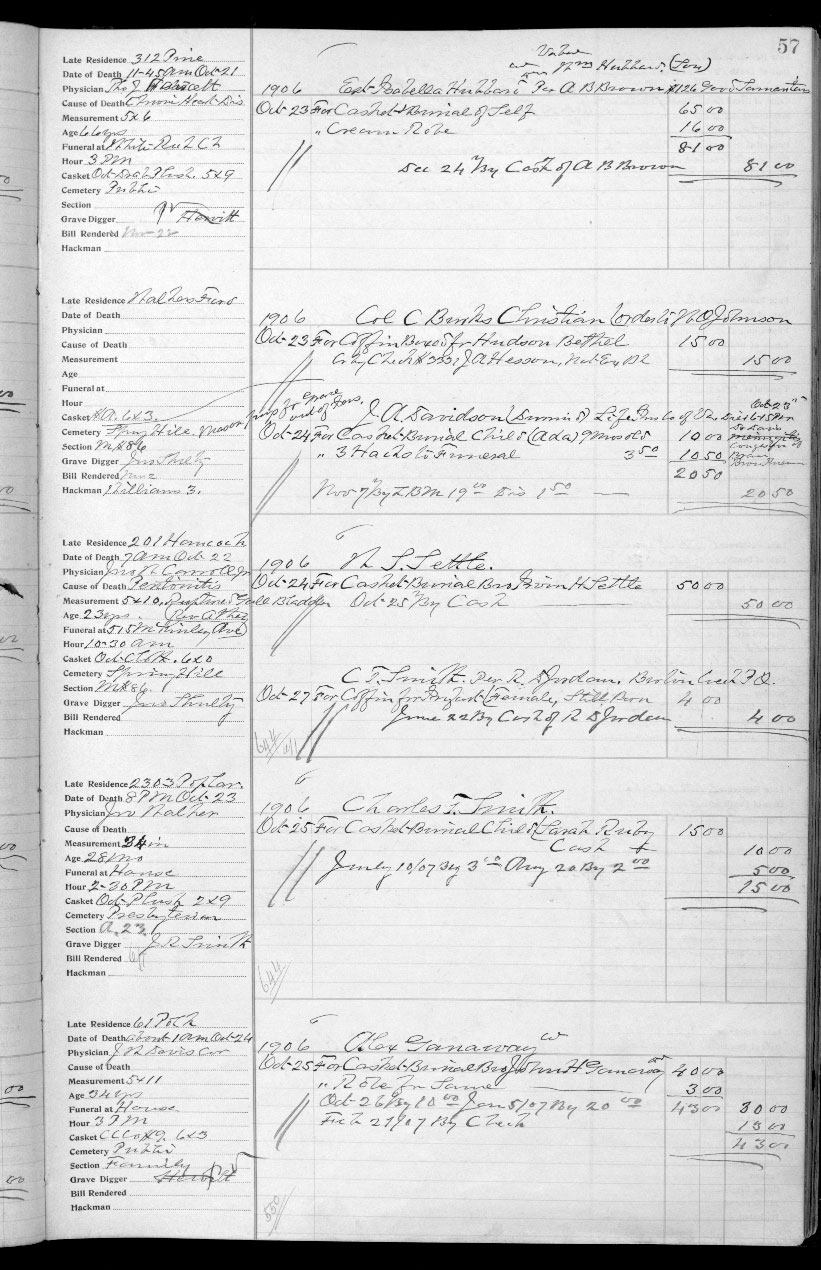 57
Wm Hubbard. (Son)
Late Residence 312 Pine
Date of Death 11-45 am Oct-21
Physician
Cause of Death Chron Heart Dis
Measurement 5x6
Age 66 yrs
Funeral at White Ch
Hour 3 PM
Casket Oct Plush. 5x9
Cemetery Public
Section
Grave Digger Hewitt
Bill Rendered Nov-22
Hackman
1906 Est-Isabella Hubbard Per A B Brown #126
Oct-23 For Casket & Burial of Self 65 00
" Cream Robe 16 00
81 00
Dec 24 By Cash of A B Brown 81 00
Late Residence
Date of Death
Physician
Cause of Death
Measurement
Age
Funeral at
Hour
Casket 6x3.
Cemetery Spring Hill.
Section
Grave Digger Jno Shultz
Bill Rendered
Hackman Williams 3.
1906 Col C Burks Christian (order W O Johnson
Oct-23 For Coffin Boxed for Hudson Bethel 15 00
City Check # J A Hesson, 15 00
J A Davidson Life Ins Co of Va Oct-23"
Oct-24 For Casket-Burial Child (Ada) 9 mos old 10 00
" 3 Hacks to Funeral 3 50 10 50
20 50
Nov 7 By I B M 19 00 Dis 1 50 20 50
Late Residence 201 Hancock
Date of Death 7 am Oct-22
Physician Jno Carroll
Cause of Death Peritonitis
Measurement 5x10 Gall Bladder
Age 23 yrs.
Funeral at 515 McKinley Ave
Hour 10-30 am
Casket Oct Cloth. 6x0
Cemetery Spring Hill
Section
Grave Digger Jno Shultz
Bill Rendered
Hackman
1906 S. Settle.
Oct-24 For Casket-Burial Bro Irvin H Settle 50 00
Oct-25 By Cash 50 00
C T. Smith. Per R D Jordan.
Oct-27 For Coffin for Infant (Female, Still Born 4 00
June 22 By Cash of R D Jordan 4 00
Late Residence 2303 Poplar.
Date of Death 8 PM Oct-23
Physician Jno Walker
Cause of Death
Measurement 34 in
Age 28 mo
Funeral at House
Hour 2-30 PM
Casket Oct-Plush 2x9
Cemetery Presbyterian
Section A. 23.
Grave Digger J R Smith
Bill Rendered
Hackman
1906 Charles T. Smith.
Oct-25 For Casket-Burial Child (Sarah Ruby 15 00
Cash 10 00
10/07 By 3 00 Aug 20 By 2 00 5 00
15 00
644
Late Residence 61 Polk
Date of Death about 1 am Oct-24
Physician J W Davis Cor
Cause of Death
Measurement 5x11
Age 34 yrs
Funeral at House
Hour 3 PM
Casket 6x3
Cemetery Public
Section Family
Grave Digger Hewitt
Bill Rendered
Hackman
1906 Alex Ganaway
Oct-25 For Casket-Burial Bro John H Ganaway 40 00
" Robe for Same 3 00
Oct-26 By 10 00 Jan 5/07 By 20 00 43 00 30 00
Feb 27/07 By Check 13 00
43 00
550